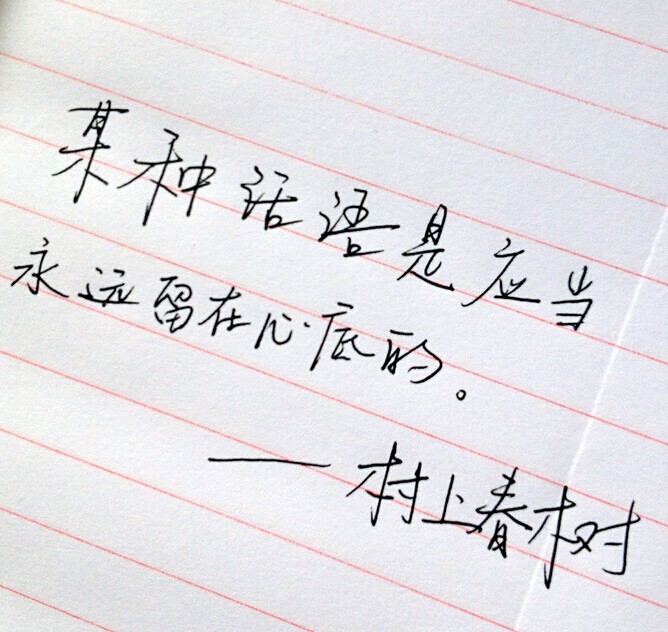 某种话语是应当
永远留在心底的。
——村上春树